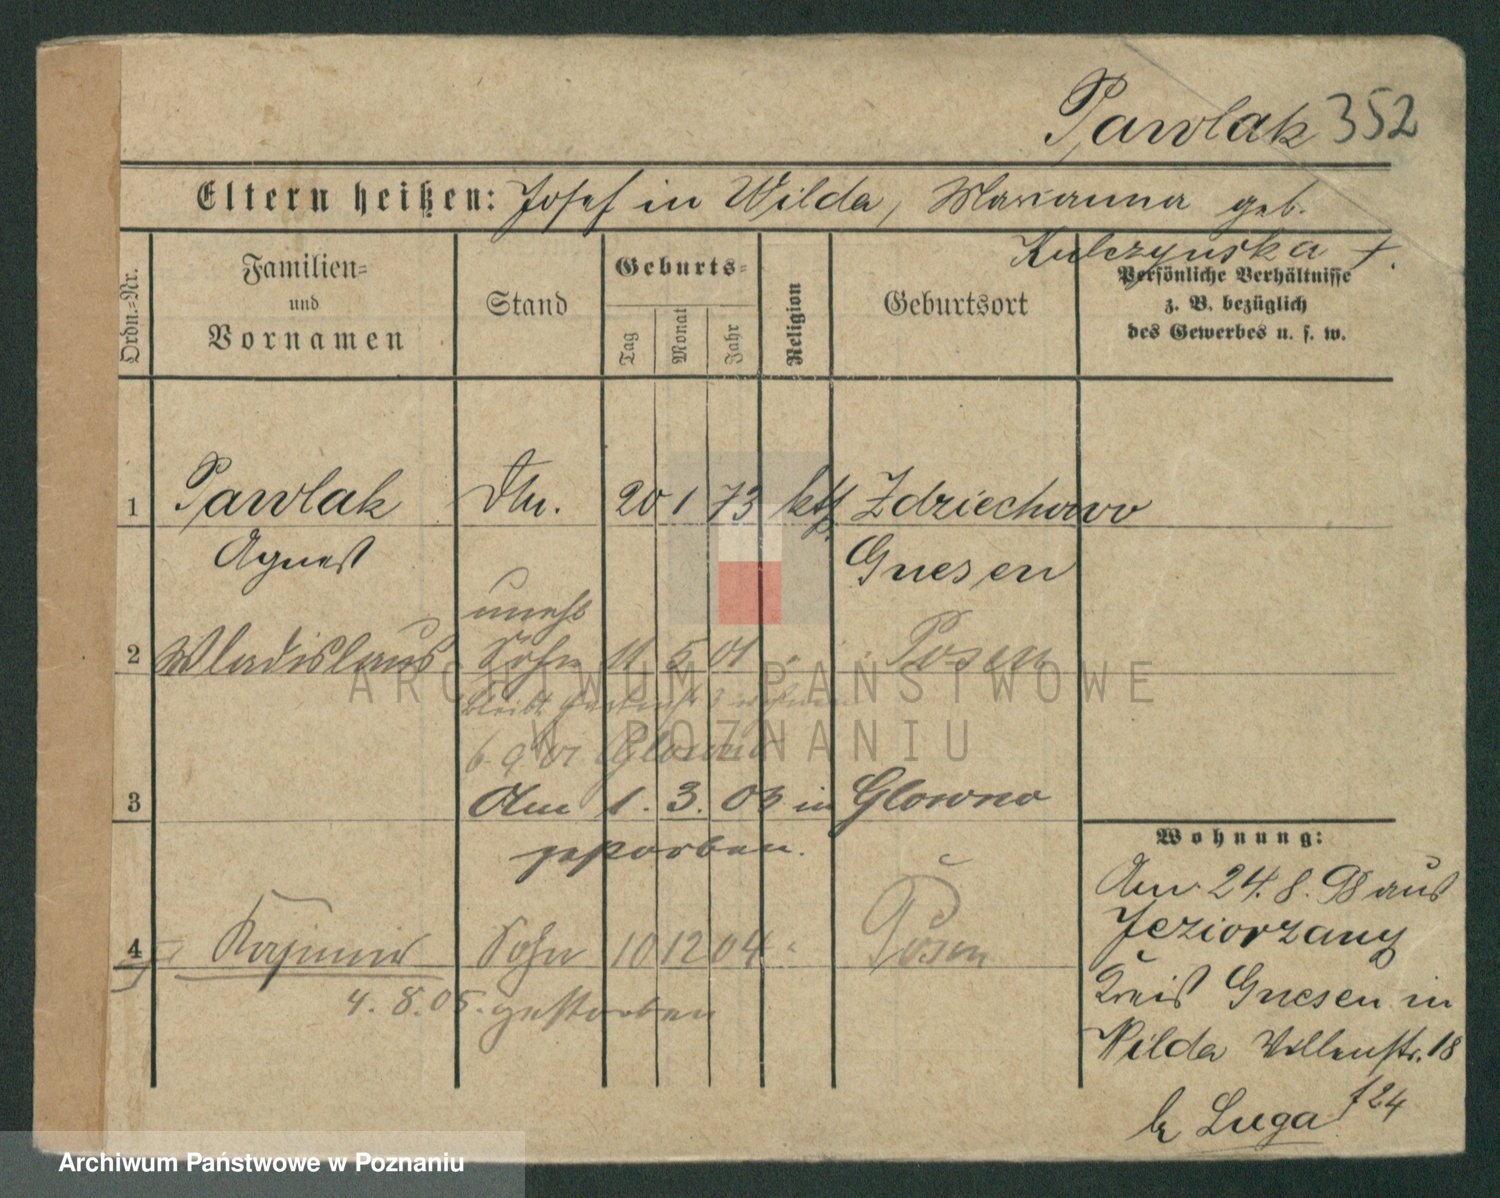 Pawlak 352
Eltern heißen: Josef in Wilda, Marianna geb.
Kulczynska †.
Ordn.-Nr.
Familien- und Vornamen
Stand
Geburts-
Tag Monat Jahr
Religion
Geburtsort
Persönliche Verhältnisse
z. B. bezüglich
des Gewerbes u. s. w.
1 Pawlak 20 1 73 kth Zdziechowo
Agnes Gnesen
unehl
2 Wladislaus Sohn 11 5 01 Posen
bleibt
6. 9. 01 Glowno
3 Am 1. 3. 03 in Glowno
gestorben.
4 Kasimir Sohn 10 12 04 Posen
4. 8. 05. gestorben
Wohnung:
Am 24. 8. 98 aus
Jeziorzany
Kreis Gnesen in
Wilda Villenstr. 18
b Luga
ARCHIWUM PAŃSTWOWE
W POZNANIU
Archiwum Państwowe w Poznaniu